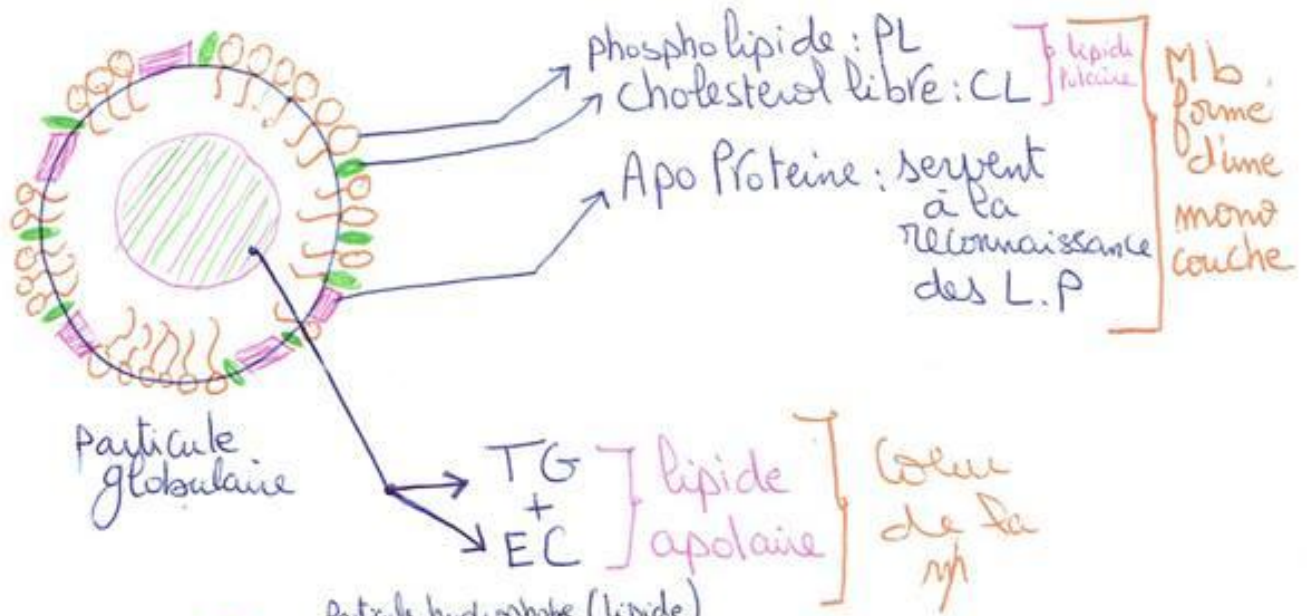 phospholipide : PL
Cholesterol libre : CL
lipide
Polaire
Apo Proteine : servent
à la
reconnaissance
des L.P
Mb
formé
d'une
mono
couche
Particule
globulaire
TG
+
EC
lipide
apolaire
Coeur
de la
Particule hydrophobe (lipide)